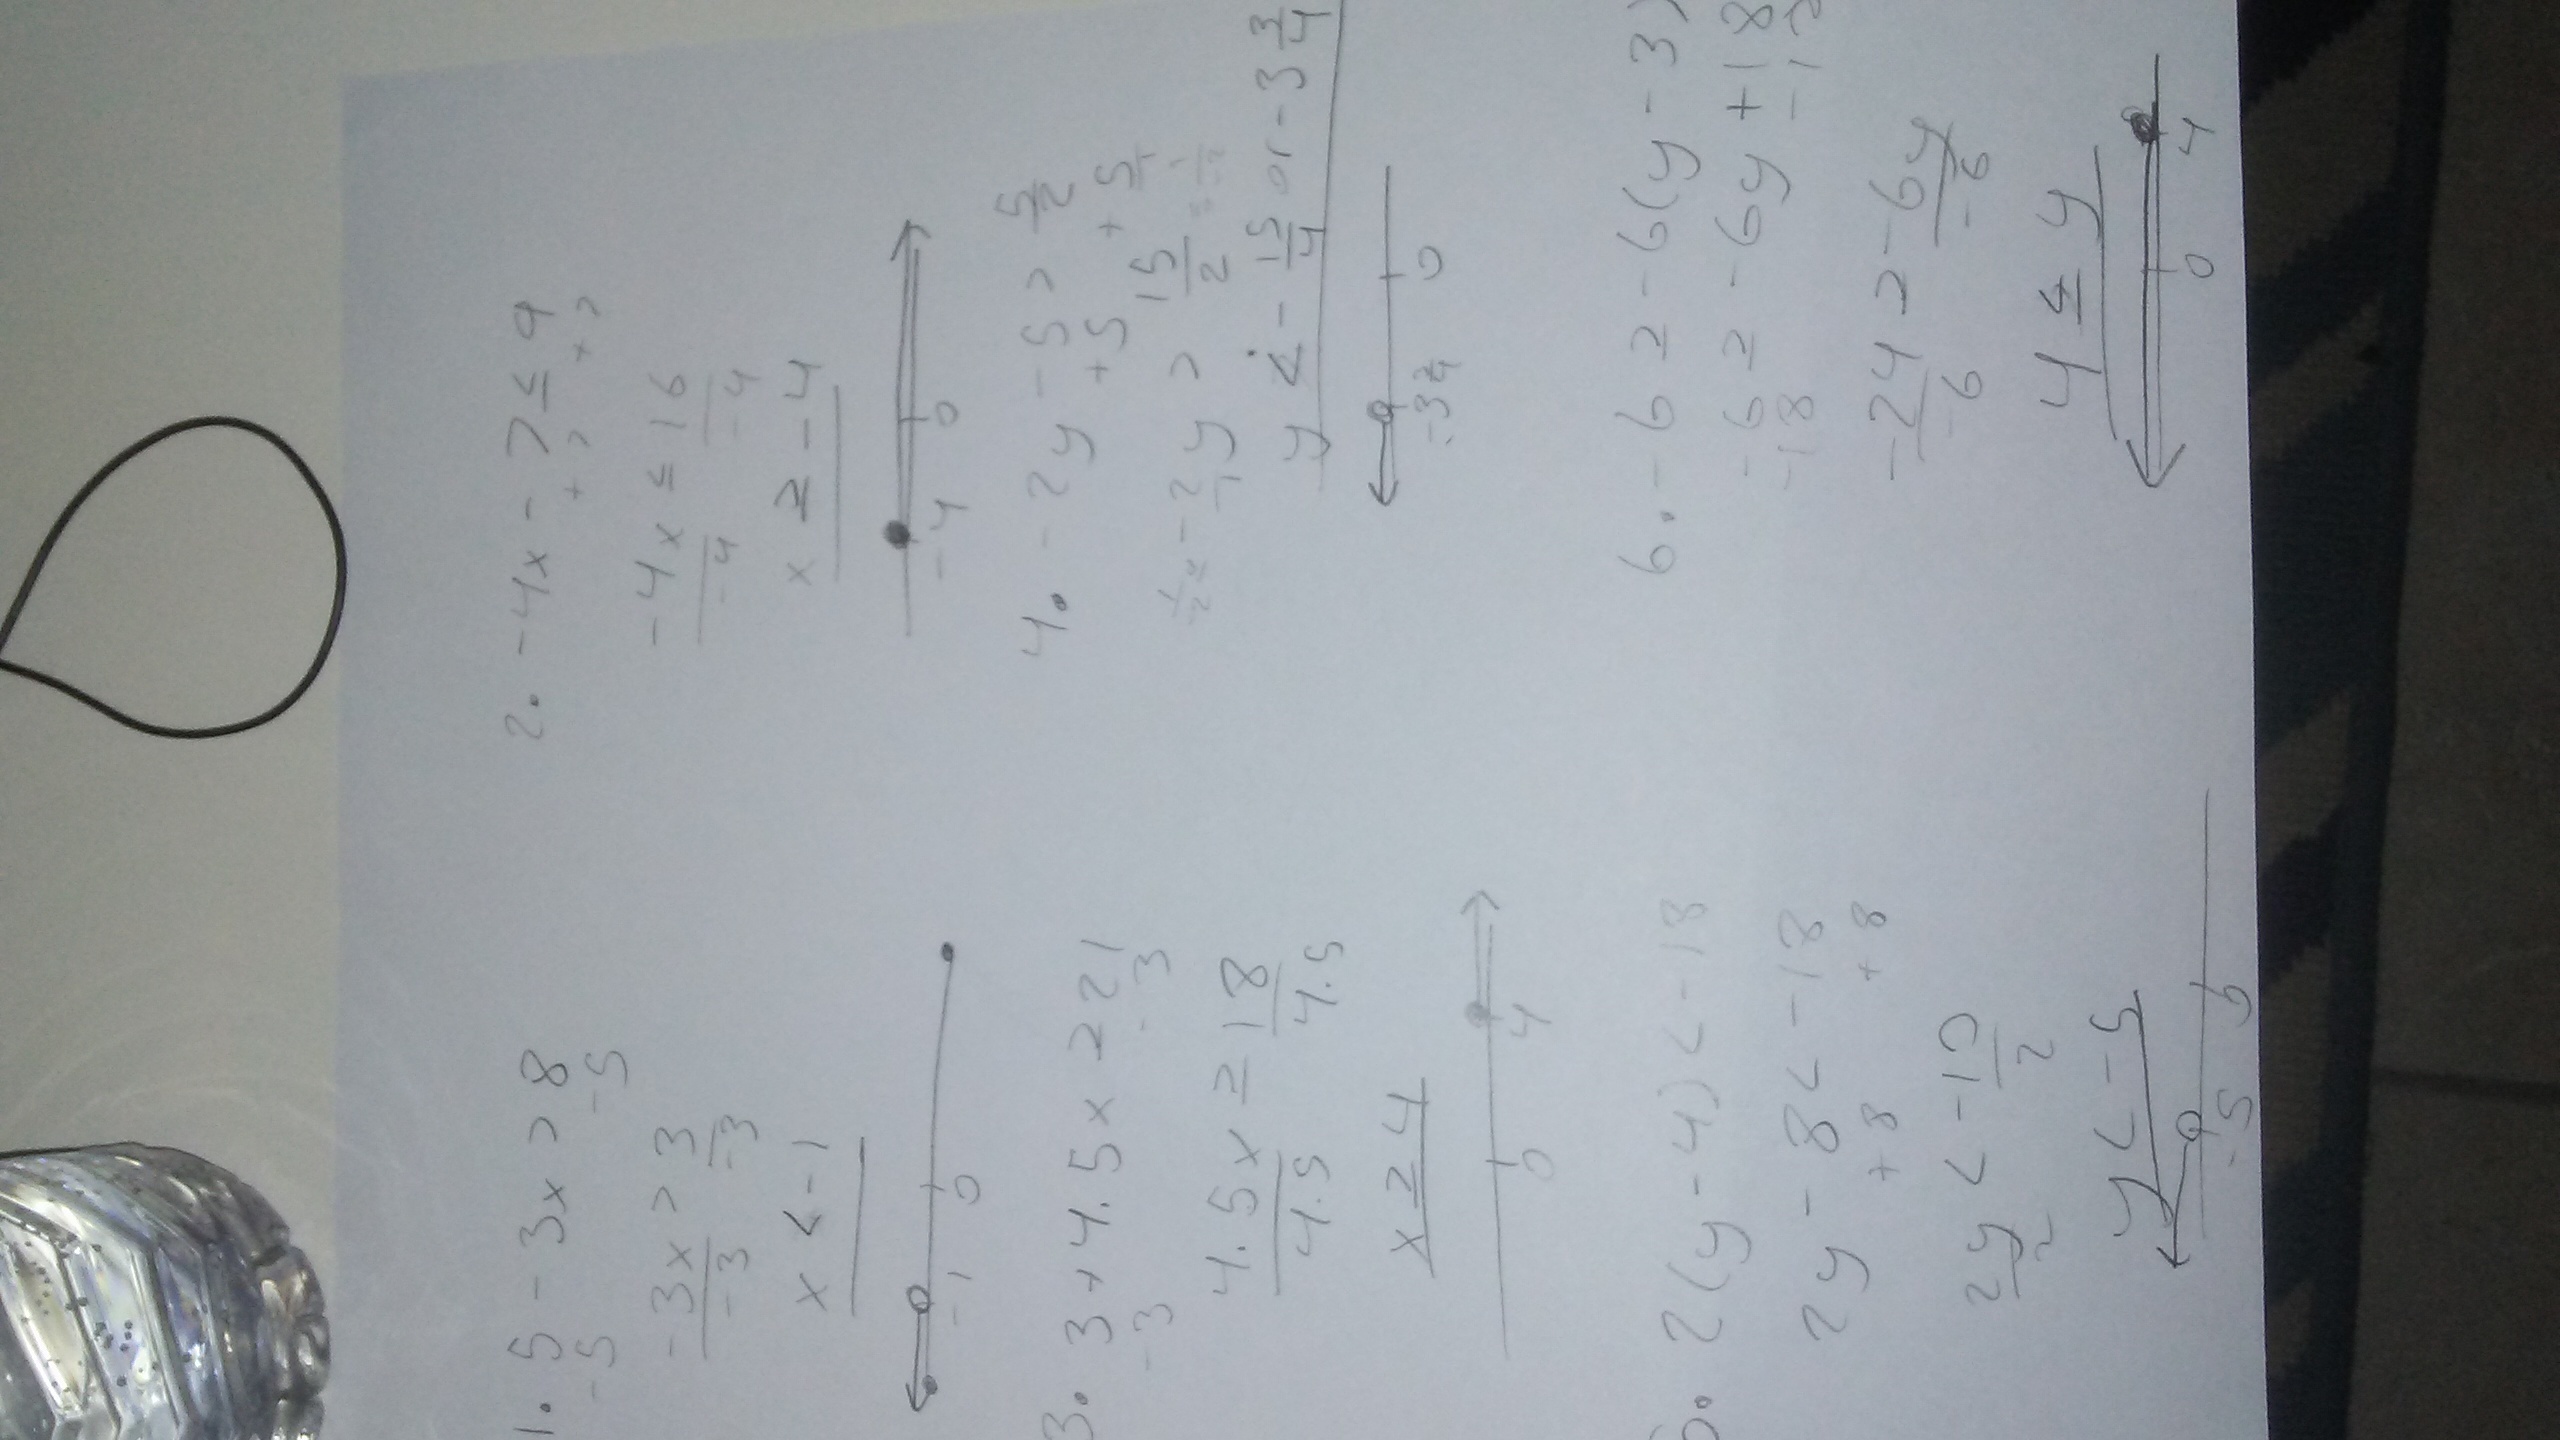 1. 5 - 3x > 8
-5 -5
-3x > 3
-3 -3
x < -1
-1 0
2. -4x - 7 ≤ 9
+7 +7
-4x ≤ 16
-4 -4
x ≥ -4
-4 0
3. 3 + 4.5x ≥ 21
-3 -3
4.5x ≥ 18
4.5 4.5
x ≥ 4
0 4
4. -2y - 5 > 5/2
+5 +5/1
-2y > 15/2
y < -15/4 or -3 3/4
-3 3/4 0
5. 2(y - 4) < -18
2y - 8 < -18
+8 +8
2y < -10
2 2
y < -5
-5 0
6. -6 ≥ -6(y - 3)
-6 ≥ -6y + 18
-18 -18
-24 ≥ -6y
-6 -6
4 ≤ y
0 4